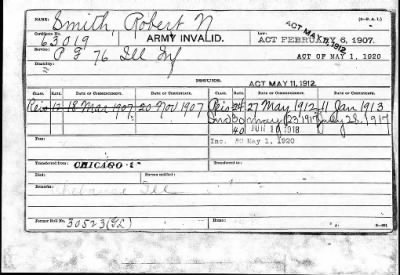 NAME Smith, Robert N (3—D.A.I.)
Certificate No. 63019 ARMY INVALID. Law: ACT FEBRUARY 6, 1907.
ACT MAY 11, 1912
Service: P F 76 Ill Inf ACT OF MAY 1, 1920
Disability:
ISSUES. ACT MAY 11, 1912.
CLASS. RATE. DATE OF COMMENCEMENT. DATE OF CERTIFICATE. CLASS. RATE. DATE OF COMMENCEMENT. DATE OF CERTIFICATE.
Reis 12 18 Mar 1907 20 Nov 1907 Reis 24 27 May 1912 11 Jan 1913
Ind 30 May 23 1917 July 28. 1917
40 JUN 10 1918
Fees: Inc. 50 May 1, 1920
Transferred from: CHICAGO
Died: Bureau notified:
Remarks: Ill
Former Roll No. 30523 Home: